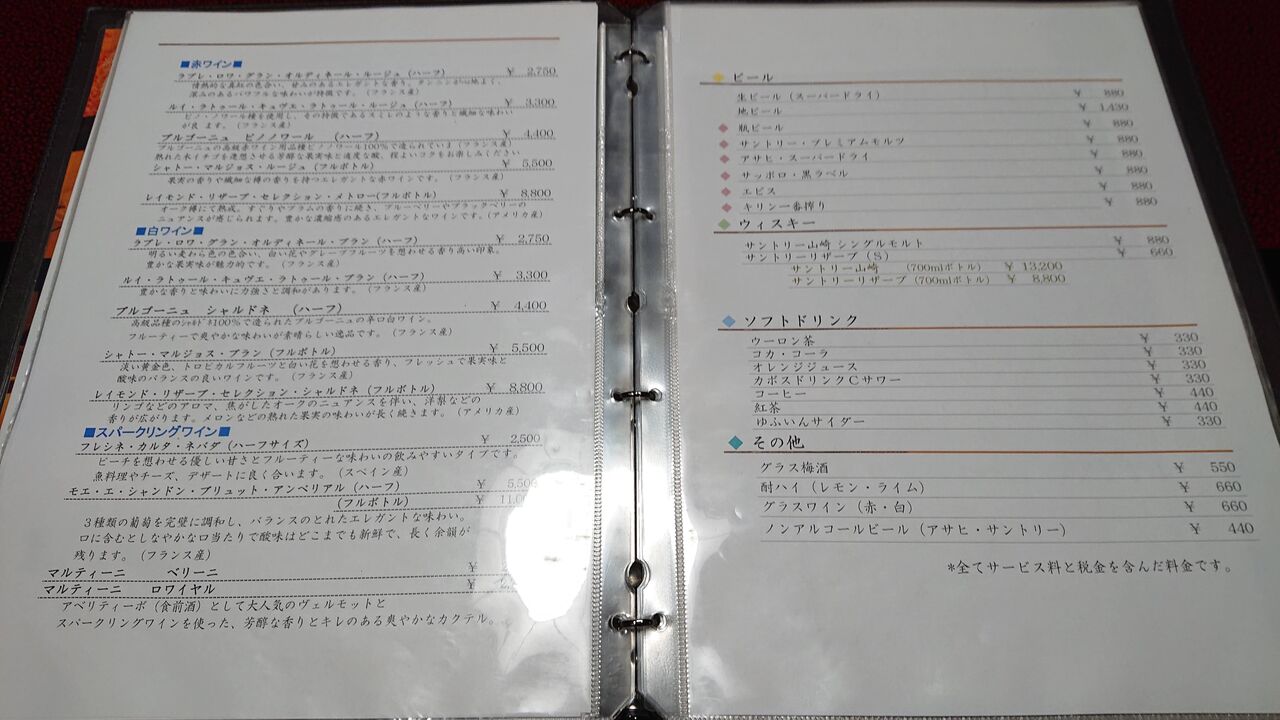 ■赤ワイン■
ラブレ・ロワ・グラン・オルディネール・ルージュ (ハーフ) ￥ 2,750
情熱的な真紅の色合い、甘みのあるエレガントな香り、タンニンが心地よく、
深みのあるパワフルな味わいが特徴です。(フランス産)
ルイ・ラトゥール・キュヴェ・ラトゥール・ルージュ (ハーフ) ￥ 3,300
ピノ・ノワール種を使用し、その特徴であるスミレのような香りと繊細な味わい
が良 ます。(フランス産)
ブルゴーニュ ピノノワール (ハーフ) ￥ 4,400
ブルゴーニュの高級赤ワイン用品種ピノノワール100%で造られています(フランス産)
熟れた木イチゴを連想させる芳醇な果実味と適度な酸、程よいコクをお楽しみください
シャトー・マルジョス・ルージュ (フルボトル) ￥ 5,500
果実の香りや繊細な樽の香りを持つエレガントな赤ワインです。(フランス産)
レイモンド・リザーブ・セレクション・メトロー(フルボトル) ￥ 8,800
オーク樽にて熟成。すぐりやプラムの香りに続き、チェリーベリーやブラックベリーの
ニュアンスが感じられます。豊かな濃縮感のあるエレガントなワインです。(アメリカ産)
■白ワイン■
ラブレ・ロワ・グラン・オルディネール・ブラン (ハーフ) ￥ 2,750
明るい麦わら色の色合い、白い花やグレープフルーツを想わせる香り高い印象。
豊かな果実味が魅力的です。(フランス産)
ルイ・ラトゥール・キュヴェ・ラトゥール・ブラン (ハーフ) ￥ 3,300
豊かな香りと味わいに力強さと調和があります。(フランス産)
ブルゴーニュ シャルドネ (ハーフ) ￥ 4,400
高級品種のｼｬﾙﾄﾞﾈ100%で造られたブルゴーニュの辛口白ワイン。
フルーティーで爽やかな味わいが素晴らしい逸品です。(フランス産)
シャトー・マルジョス・ブラン (フルボトル) ￥ 5,500
淡い黄金色、トロピカルフルーツと白い花を想わせる香り、フレッシュで果実味と
酸味のバランスの良いワインです。(フランス産)
レイモンド・リザーブ・セレクション・シャルドネ (フルボトル) ￥ 8,800
リンゴなどのアロマ、焦がしたオークのニュアンスを伴い、洋梨などの
香りが広がります。メロンなどの熟れた果実の味わいが長く続きます。(アメリカ産)
■スパークリングワイン■
フレシネ・カルタ・ネバダ (ハーフサイズ) ￥ 2,500
ピーチを想わせる優しい甘さとフルーティーな味わいの飲みやすいタイプです。
魚料理やチーズ、デザートに良く合います。(スペイン産)
モエ・エ・シャンドン・ブリュット・アンペリアル (ハーフ) ￥ 5,500
(フルボトル) ￥ 11,000
３種類の葡萄を完璧に調和し、バランスのとれたエレガントな味わい。
口に含むとしなやかな口当たりで酸味はどこまでも新鮮で、長く余韻が
残ります。(フランス産)
マルティーニ ベリーニ ￥
マルティーニ ロワイヤル ￥
アペリティーボ (食前酒) として大人気のヴェルモットと
スパークリングワインを使った、芳醇な香りとキレのある爽やかなカクテル。
ビール
生ビール (スーパードライ) ￥ 880
地ビール ￥ 1,430
瓶ビール ￥ 880
サントリー・プレミアムモルツ ￥ 880
アサヒ・スーパードライ ￥ 880
サッポロ・黒ラベル ￥ 880
エビス ￥ 880
キリン一番搾り ￥ 880
ウィスキー
サントリー山崎 シングルモルト ￥ 880
サントリーリザーブ (Ｓ) ￥ 660
サントリー山崎 (700mlボトル) ￥ 13,200
サントリーリザーブ (700mlボトル) ￥ 8,800
ソフトドリンク
ウーロン茶 ￥ 330
コカ・コーラ ￥ 330
オレンジジュース ￥ 330
カボスドリンクＣサワー ￥ 330
コーヒー ￥ 440
紅茶 ￥ 440
ゆふいんサイダー ￥ 330
その他
グラス梅酒 ￥ 550
酎ハイ (レモン・ライム) ￥ 660
グラスワイン (赤・白) ￥ 660
ノンアルコールビール (アサヒ・サントリー) ￥ 440
*全てサービス料と税金を含んだ料金です。